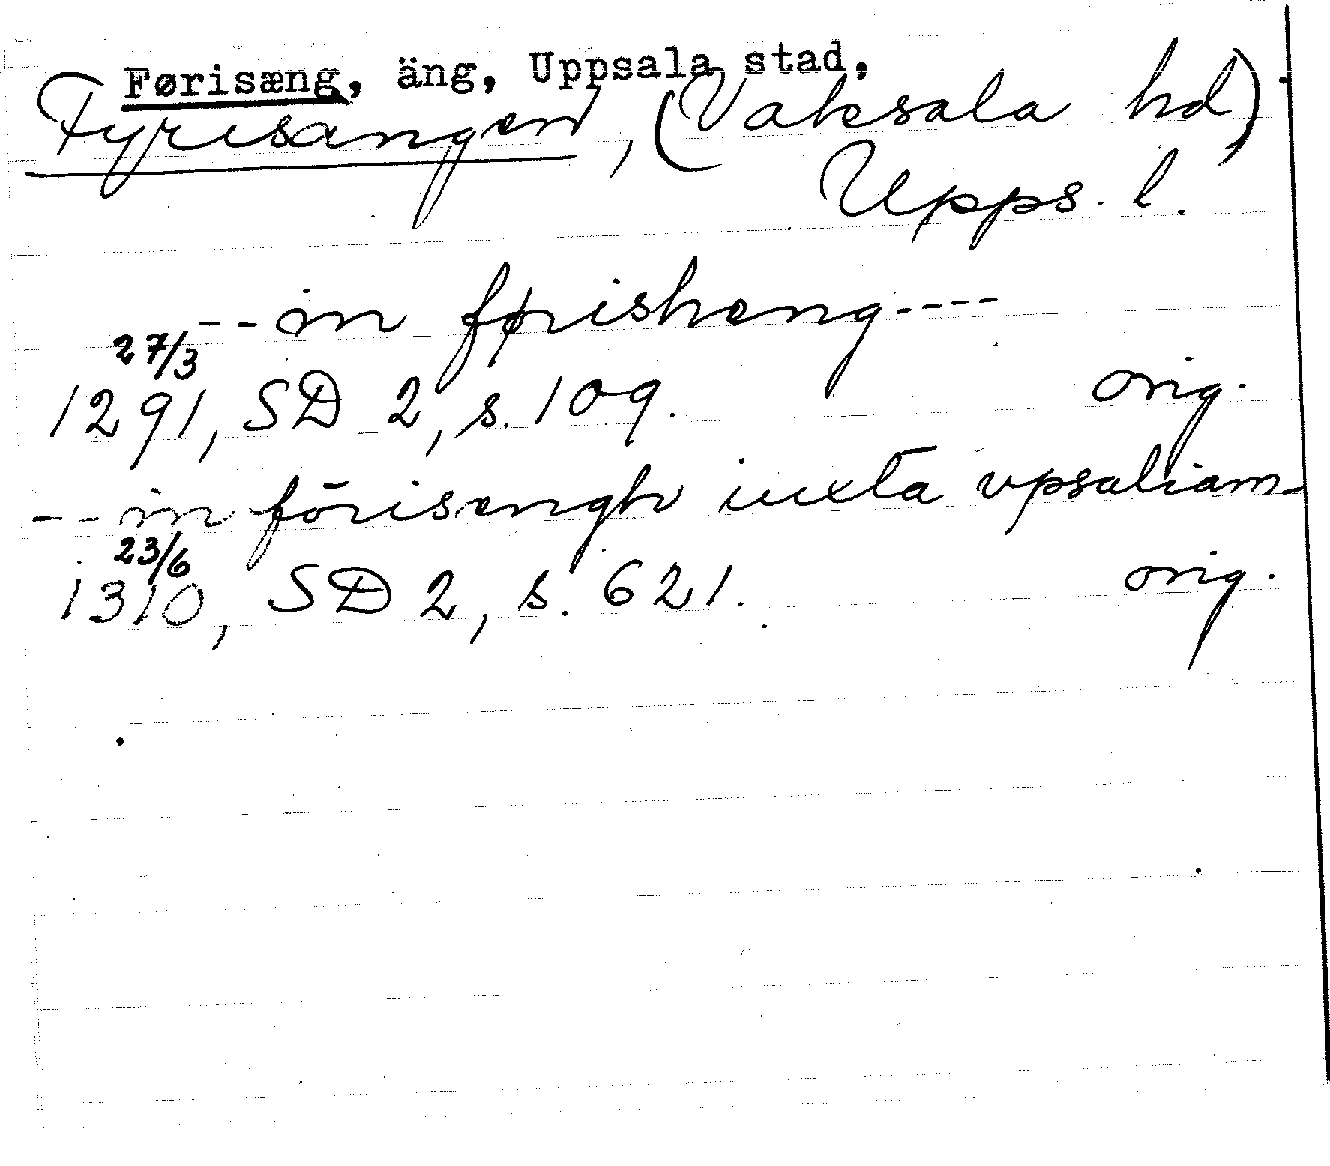 Førisæng, äng, Uppsala stad,
Fyrisängen, (Vaksala hd)
Upps. l.
-- in førishæng ----
27/3
1291, SD 2, s. 109. orig.
-- in förisængh iuxta vpsaliam-
23/6
1310, SD 2, s. 621. orig.